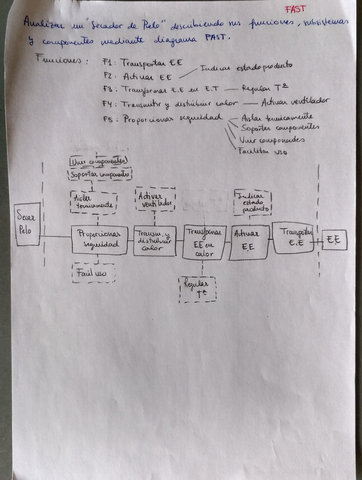 FAST
Analizar un "Secador de Pelo" describiendo sus funciones, subsistemas
y componentes mediante diagrama FAST.
Funciones: F1: Transportar EE
F2: Activar EE — Indicar estado producto
F3: Transformar E.E en E.T — Regular Tª
F4: Transmitir y distribuir calor — Activar ventilador
F5: Proporcionar seguridad — Aislar térmicamente
Soportar componentes
Unir componentes
Facilitar uso
Unir componentes
Soportar componentes
Aislar térmicamente
Activar ventilador
Indicar estado producto
Secar Pelo
Proporcionar seguridad
Transm. y distribuir calor
Transformar EE en calor
Activar EE
Transportar E.E
EE
Fácil uso
Regular Tª